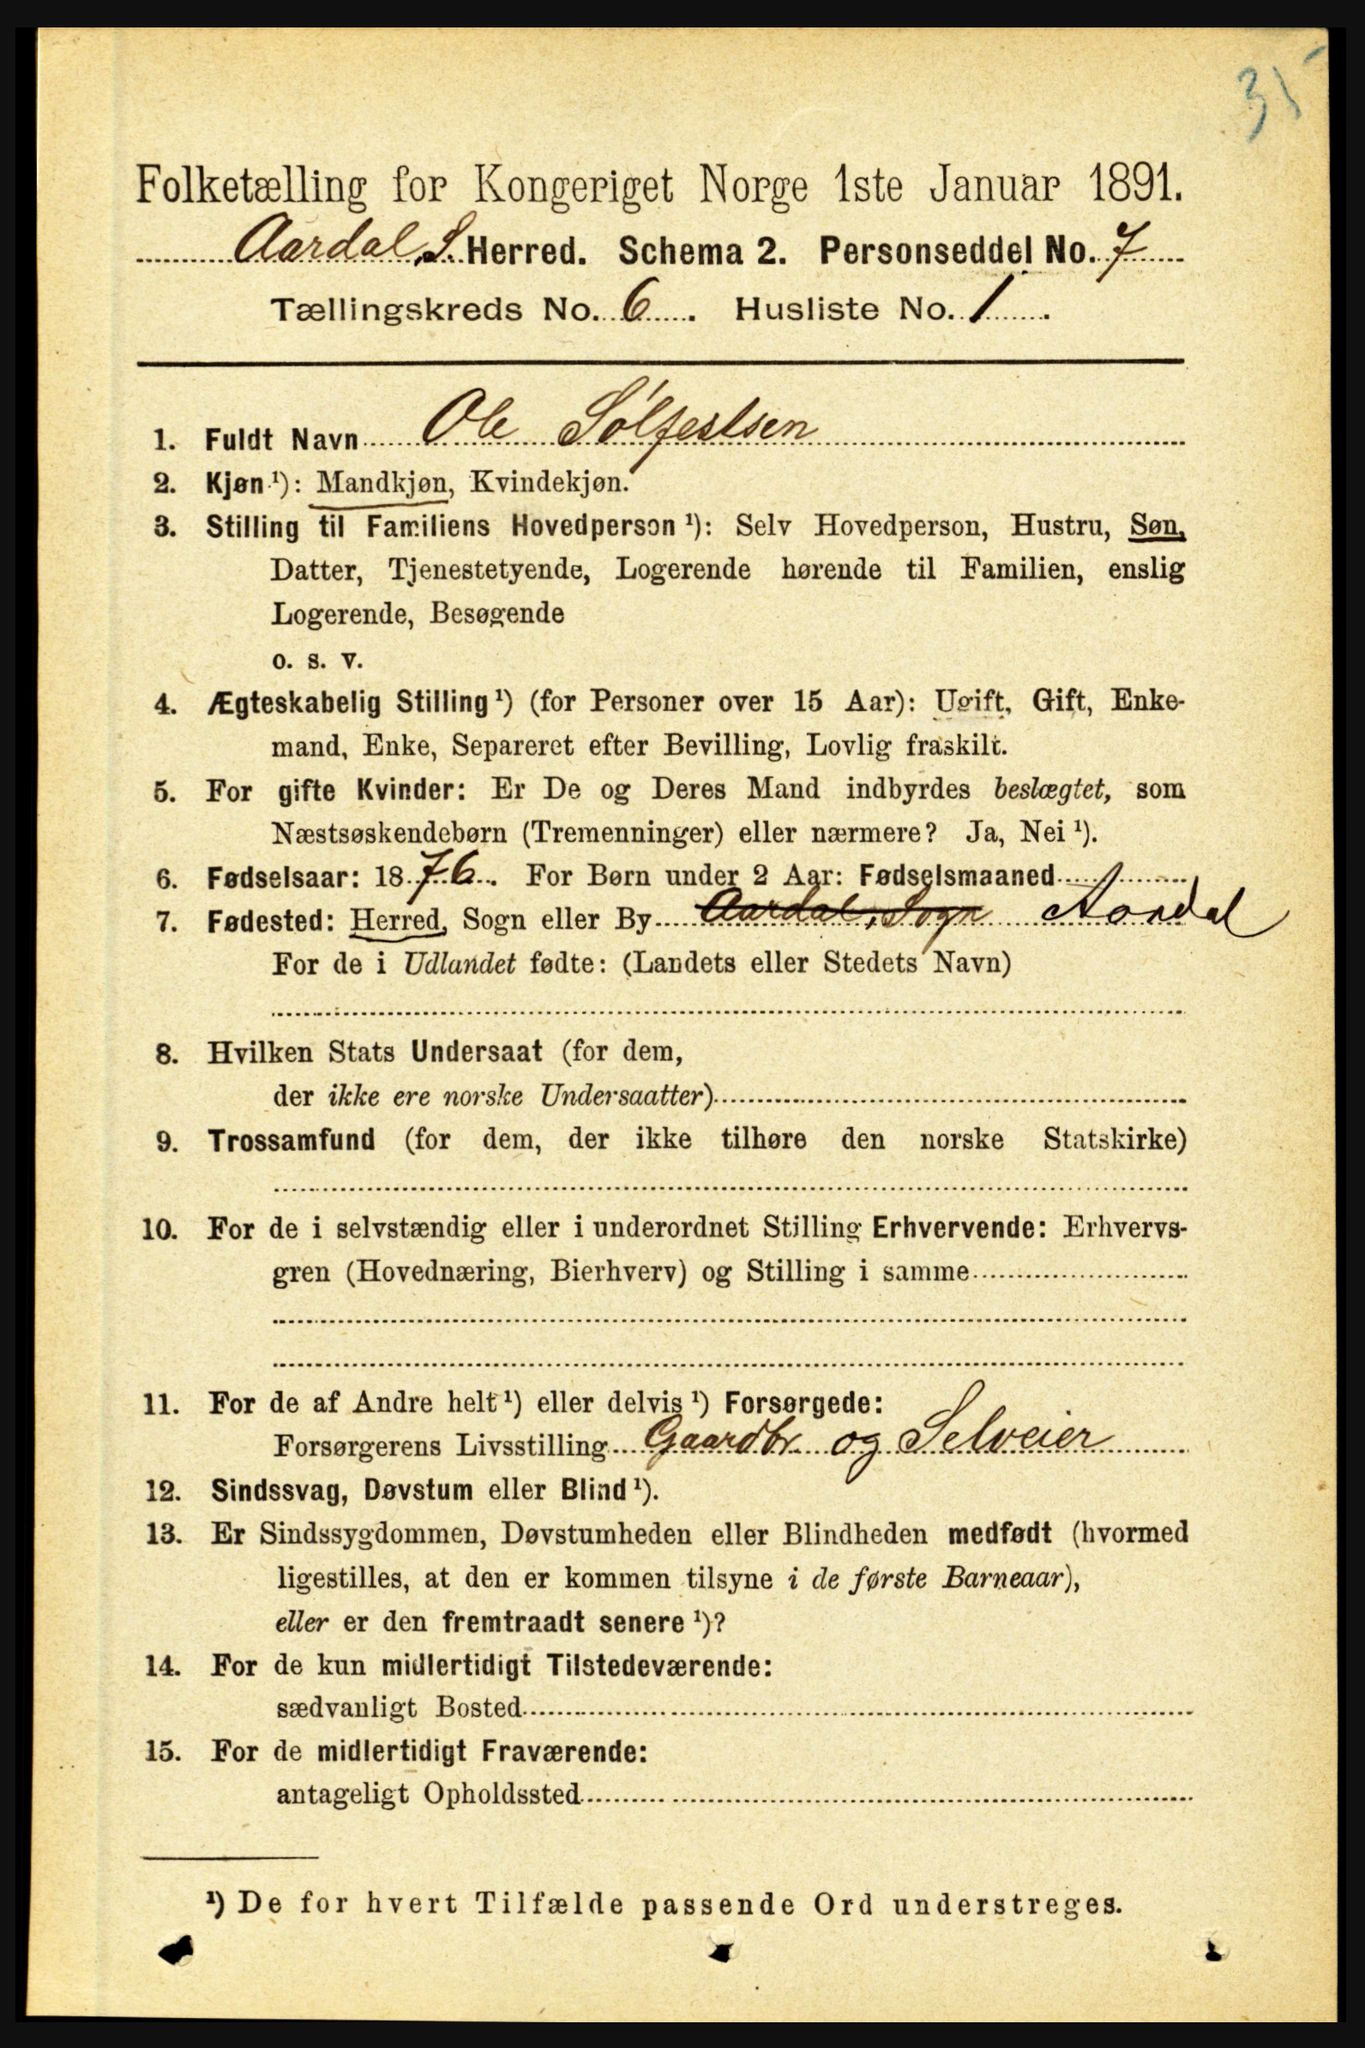 35
Folketælling for Kongeriget Norge 1ste Januar 1891.
Aardal, S. Herred. Schema 2. Personseddel No. 7
Tællingskreds No. 6. Husliste No. 1.
1. Fuldt Navn Ole Sølfestsen
2. Kjøn ¹): Mandkjøn, Kvindekjøn.
3. Stilling til Familiens Hovedperson ¹): Selv Hovedperson, Hustru, Søn,
Datter, Tjenestetyende, Logerende hørende til Familien, enslig
Logerende, Besøgende
o. s. v.
4. Ægteskabelig Stilling ¹) (for Personer over 15 Aar): Ugift, Gift, Enke-
mand, Enke, Separeret efter Bevilling, Lovlig fraskilt.
5. For gifte Kvinder: Er De og Deres Mand indbyrdes beslægtet, som
Næstsøskendebørn (Tremenninger) eller nærmere? Ja, Nei ¹).
6. Fødselsaar: 1876. For Børn under 2 Aar: Fødselsmaaned
7. Fødested: Herred, Sogn eller By Aardal, Sogn Aardal
For de i Udlandet fødte: (Landets eller Stedets Navn)
8. Hvilken Stats Undersaat (for dem,
der ikke ere norske Undersaatter)
9. Trossamfund (for dem, der ikke tilhøre den norske Statskirke)
10. For de i selvstændig eller i underordnet Stilling Erhvervende: Erhvervs-
gren (Hovednæring, Bierhverv) og Stilling i samme
11. For de af Andre helt ¹) eller delvis ¹) Forsørgede:
Forsørgerens Livsstilling Gaardbr. og Selveier
12. Sindssvag, Døvstum eller Blind ¹).
13. Er Sindssygdommen, Døvstumheden eller Blindheden medfødt (hvormed
ligestilles, at den er kommen tilsyne i de første Barneaar),
eller er den fremtraadt senere ¹)?
14. For de kun midlertidigt Tilstedeværende:
sædvanligt Bosted
15. For de midlertidigt Fraværende:
antageligt Opholdssted
¹) De for hvert Tilfælde passende Ord understreges.